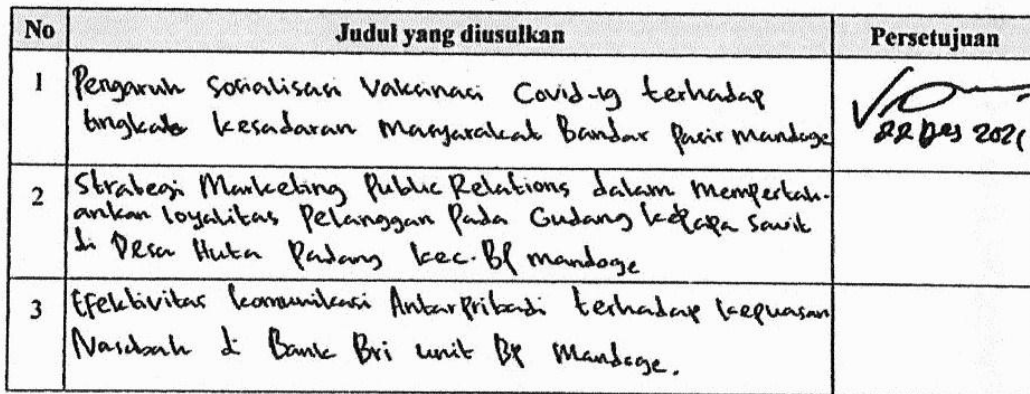 No Judul yang diusulkan Persetujuan
1 Pengaruh Sosialisasi Vaksinasi Covid-19 terhadap
tingkat kesadaran Masyarakat Bandar Pasir mandoge
22 Des 2021
2 Strategi Marketing Public Relations dalam mempertah-
ankan loyalitas Pelanggan Pada Gudang kelapa Sawit
di Desa Huta Padang kec. BP mandoge
3 Efektivitas komunikasi Antar Pribadi terhadap kepuasan
Nasabah di Bank Bri unit BP Mandoge.